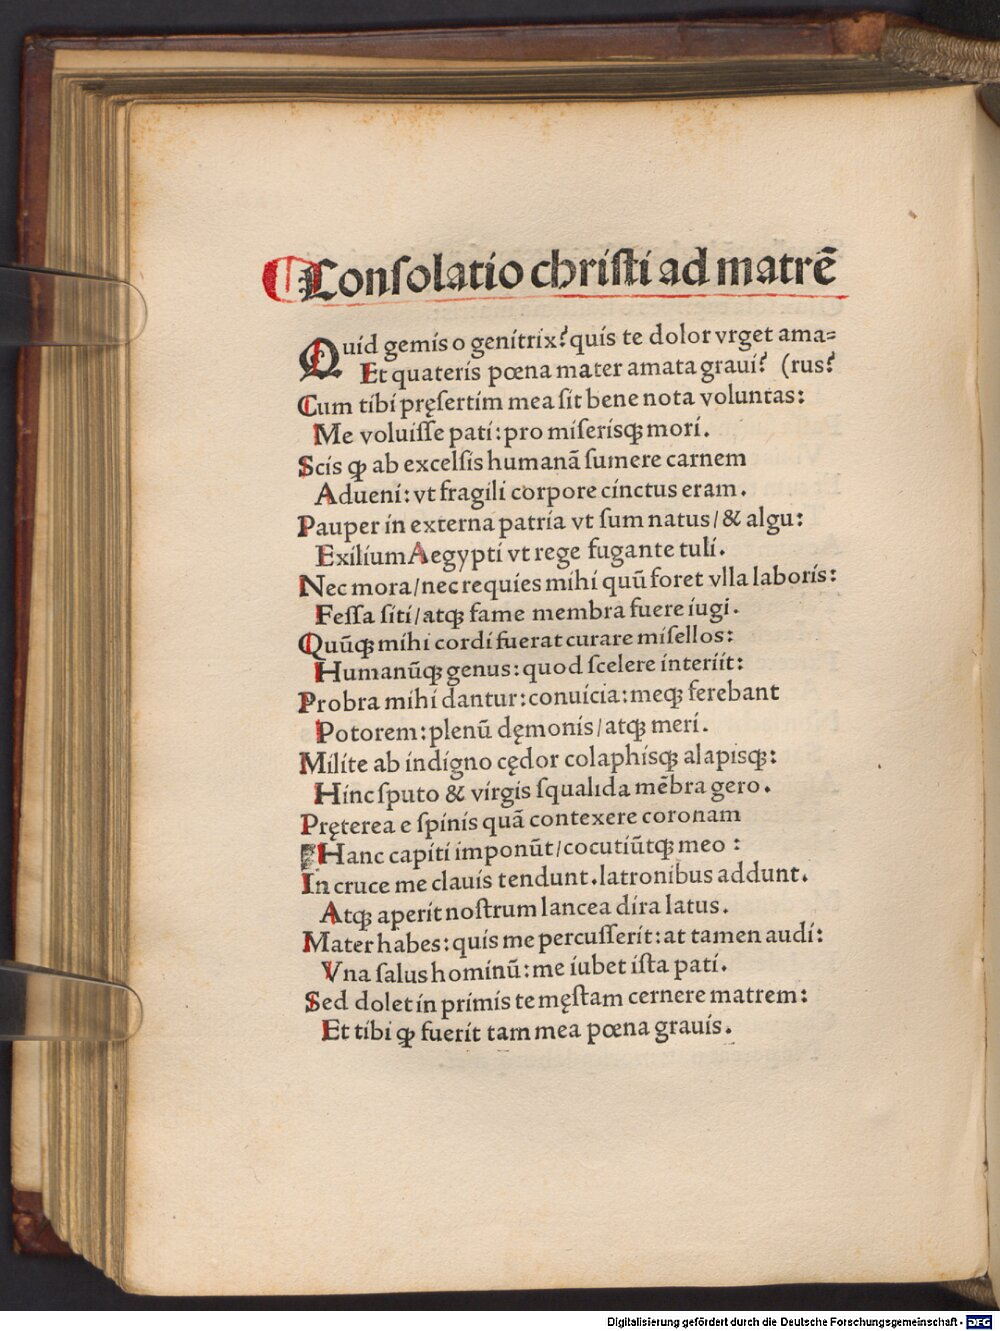 Conſolatio chriſti ad matrē
Quid gemis o genitrix? quis te dolor vrget ama=
Et quateris pœna mater amata graui? (rus?
Cum tibi pręſertim mea ſit bene nota voluntas:
Me voluiſſe pati: pro miſerisqꝫ mori.
Scis ꝙ ab excelſis humanā ſumere carnem
Adueni: vt fragili corpore cinctus eram.
Pauper in externa patria vt ſum natus/ & algu:
Exilium Aegypti vt rege fugante tuli.
Nec mora/ nec requies mihi quū foret vlla laboris:
Feſſa ſiti/ atqꝫ fame membra fuere iugi.
Quūqꝫ mihi cordi fuerat curare miſellos:
Humanūqꝫ genus: quod ſcelere interiit:
Probra mihi dantur: conuicia: meqꝫ ferebant
Potorem: plenū dęmonis/ atqꝫ meri.
Milite ab indigno cędor colaphisqꝫ alapisqꝫ:
Hinc ſputo & virgis ſqualida mēbra gero.
Pręterea e ſpinis quā contexere coronam
Hanc capiti imponūt/ cocutiūtqꝫ meo :
In cruce me clauis tendunt. latronibus addunt.
Atqꝫ aperit noſtrum lancea dira latus.
Mater habes: quis me percuſſerit: at tamen audi:
Vna ſalus hominū: me iubet iſta pati.
Sed dolet in primis te męſtam cernere matrem:
Et tibi ꝙ fuerit tam mea pœna grauis.
Digitalisierung gefördert durch die Deutsche Forschungsgemeinschaft - DFG